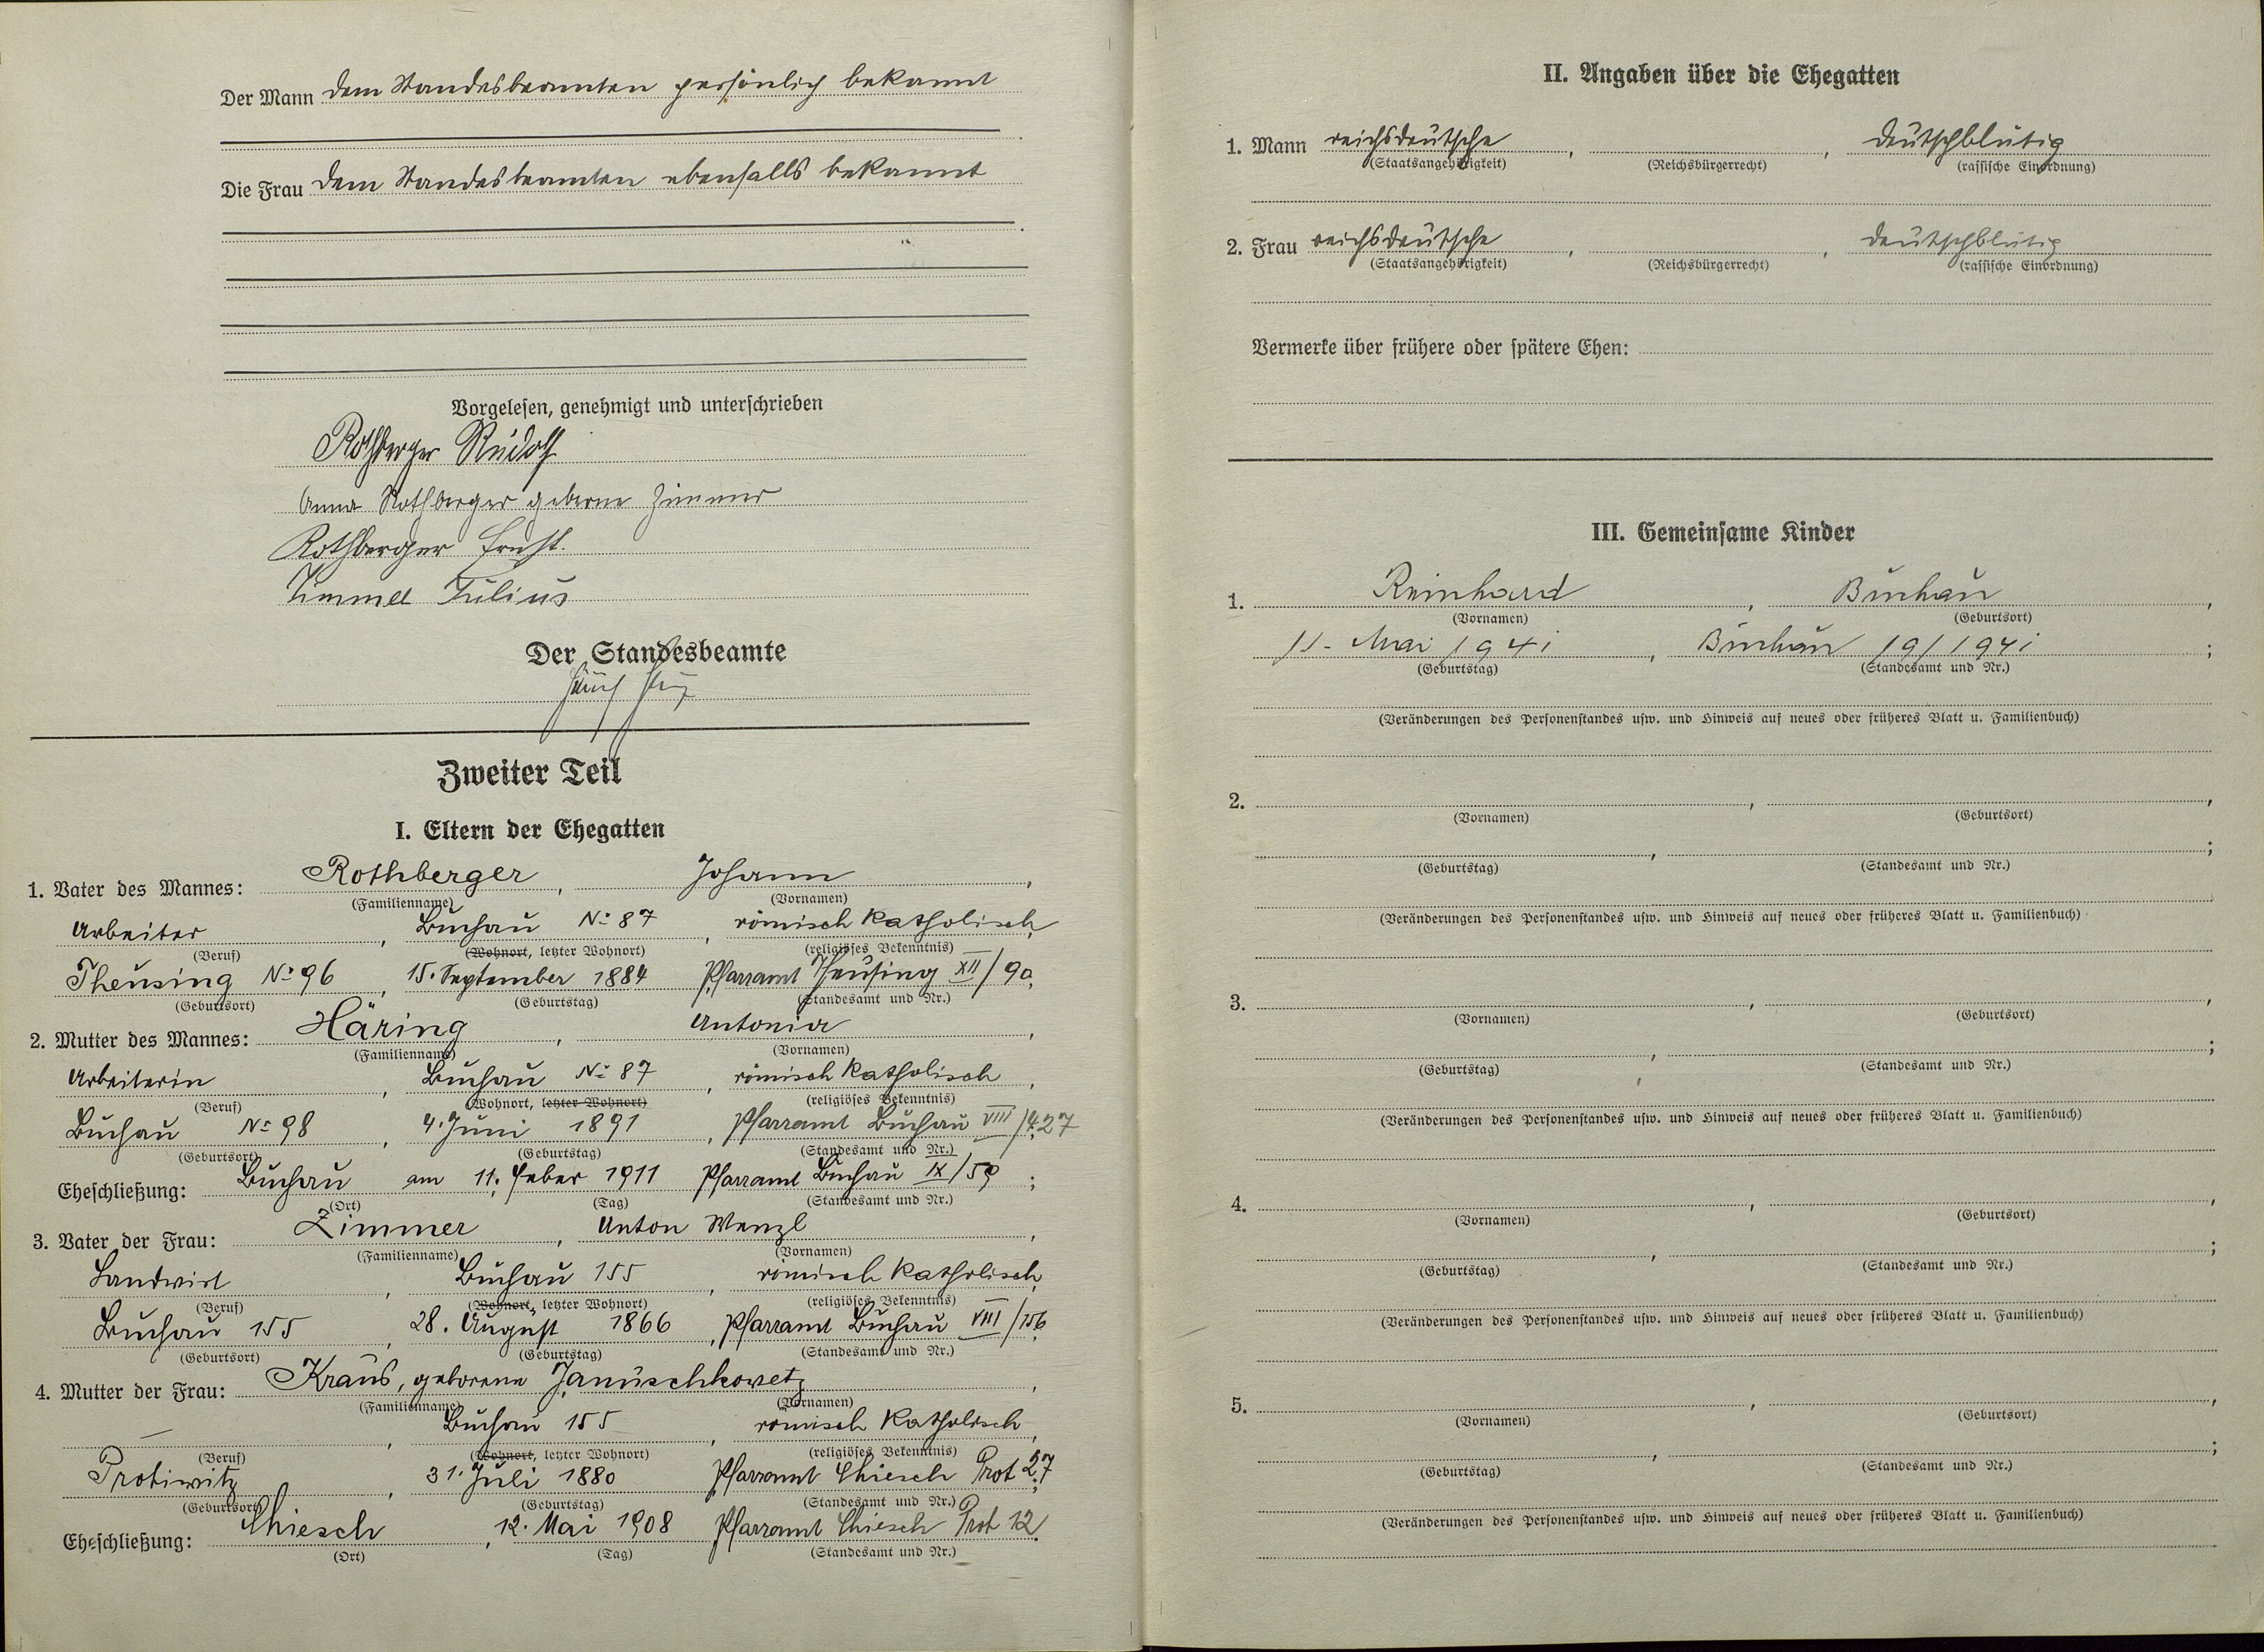 Der Mann dem Standesbeamten persönlich bekannt
Die Frau dem Standesbeamten ebenfalls bekannt
Vorgelesen, genehmigt und unterschrieben
Rothberger Rudolf
Anna Rothberger geborne Zimmer
Rothberger Ernst.
Julius
Der Standesbeamte
Zweiter Teil
I. Eltern der Ehegatten
1. Vater des Mannes: Rothberger, Johann,
(Familienname) (Vornamen)
Arbeiter, Buchau No 87, römisch katholisch,
(Beruf) (Wohnort, letzter Wohnort) (religiöses Bekenntnis)
Theusing No 96, 15. September 1884 Pfarramt Theusing XII/90,
(Geburtsort) (Geburtstag) (Standesamt und Nr.)
2. Mutter des Mannes: Häring, Antonia,
(Familienname) (Vornamen)
Arbeiterin, Buchau No 87, römisch katholisch,
(Beruf) (Wohnort, letzter Wohnort) (religiöses Bekenntnis)
Buchau No 98, 4. Juni 1891, Pfarramt Buchau VIII/427
(Geburtsort) (Geburtstag) (Standesamt und Nr.)
Eheschließung: Buchau am 11. Feber 1911 Pfarramt Buchau IX/59;
(Ort) (Tag) (Standesamt und Nr.)
3. Vater der Frau: Zimmer, Anton Wenzl,
(Familienname) (Vornamen)
Landwirt, Buchau 155, römisch katholisch,
(Beruf) (Wohnort, letzter Wohnort) (religiöses Bekenntnis)
Buchau 155, 28. August 1866, Pfarramt Buchau VIII/156,
(Geburtsort) (Geburtstag) (Standesamt und Nr.)
4. Mutter der Frau: Kraus, geborene Januschkowetz,
(Familienname) (Vornamen)
—, Buchau 155, römisch katholisch,
(Beruf) (Wohnort, letzter Wohnort) (religiöses Bekenntnis)
Protiwitz, 31. Juli 1880 Pfarramt Chiesch Prot 27;
(Geburtsort) (Geburtstag) (Standesamt und Nr.)
Eheschließung: Chiesch, 12. Mai 1908 Pfarramt Chiesch Prot 12.
(Ort) (Tag) (Standesamt und Nr.)
II. Angaben über die Ehegatten
1. Mann reichsdeutsche, , deutschblütig
(Staatsangehörigkeit) (Reichsbürgerrecht) (rassische Einordnung)
2. Frau reichsdeutsche, , deutschblütig
(Staatsangehörigkeit) (Reichsbürgerrecht) (rassische Einordnung)
Vermerke über frühere oder spätere Ehen:
III. Gemeinsame Kinder
1. Reinhard, Buchau,
(Vornamen) (Geburtsort)
11. Mai 1941, Buchau 19/1941;
(Geburtstag) (Standesamt und Nr.)
(Veränderungen des Personenstandes usw. und Hinweis auf neues oder früheres Blatt u. Familienbuch)
2. , ,
(Vornamen) (Geburtsort)
, ;
(Geburtstag) (Standesamt und Nr.)
(Veränderungen des Personenstandes usw. und Hinweis auf neues oder früheres Blatt u. Familienbuch)
3. , ,
(Vornamen) (Geburtsort)
, ;
(Geburtstag) (Standesamt und Nr.)
(Veränderungen des Personenstandes usw. und Hinweis auf neues oder früheres Blatt u. Familienbuch)
4. , ,
(Vornamen) (Geburtsort)
, ;
(Geburtstag) (Standesamt und Nr.)
(Veränderungen des Personenstandes usw. und Hinweis auf neues oder früheres Blatt u. Familienbuch)
5. , ,
(Vornamen) (Geburtsort)
, ;
(Geburtstag) (Standesamt und Nr.)
(Veränderungen des Personenstandes usw. und Hinweis auf neues oder früheres Blatt u. Familienbuch)